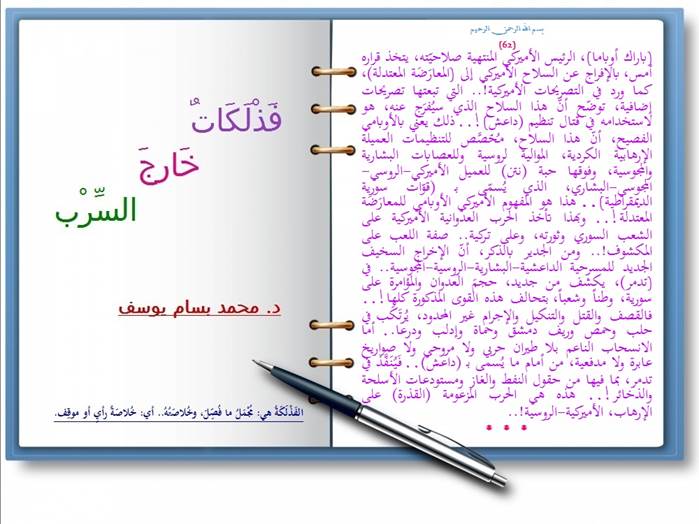 بسم الله الرحمن الرحيم
(62)
(باراك أوباما)، الرئيس الأميركي المنتهية صلاحيّته، يتخذ قراره
أمس، بالإفراج عن السلاح الأميركي إلى (المعارَضَة المعتدلة)،
كما ورد في التصريحات الأميركية!.. التي تبعتها تصريحات
إضافية، توضح أنّ هذا السلاح الذي سيُفرَج عنه، هو
لاستخدامه في قتال تنظيم (داعش)!.. ذلك يعني بالأوبامي
الفصيح، أنّ هذا السلاح، مُخَصَّص للتنظيمات العميلة
الإرهابية الكردية، الموالية لروسية وللعصابات البشارية
والمجوسية، وفوقها حبة (نتن) للعميل الأميركي-الروسي-
المجوسي-البشاري، الذي يُسمّى بـ (قوّات سورية
الديمقراطية).. هذا هو المفهوم الأميركي الأوبامي للمعارَضة
المعتدلة!.. وبهذا تأخذ الحرب العدوانية الأميركية على
الشعب السوري وثورته، وعلى تركية.. صفة اللعب على
المكشوف!.. ومن الجدير بالذكر، أنّ الإخراج السخيف
الجديد للمسرحية الداعشية-البشارية-الروسية-المجوسية.. في
(تدمر)، يكشف من جديد، حجمَ العدوان والمؤامرة على
سورية، وطناً وشعباً، بتحالف هذه القوى المذكورة كلها!..
فالقصف والقتل والتنكيل والإجرام غير المحدود، يُرتَكَب في
حلب وحمص وريف دمشق وحماة وإدلب ودرعا.. أما
الانسحاب الناعم بلا طيران حربي ولا مروحي ولا صواريخ
عابرة ولا مدفعية، من أمام ما يُسمى بـ (داعش).. فيُنَفَّذُ في
تدمر، بما فيها من حقول النفط والغاز ومستودعات الأسلحة
والذخائر!.. هذه هي الحرب المزعومة (القذرة) على
الإرهاب، الأميركية-الروسية!..
* * *
فَذْلَكَاتٌ
خَارِجَ
السِّرْب
د. محمد بسام يوسف
الفَذْلَكَةُ هي: مُجْمَلُ ما فُصِّلَ، وخُلاصَتُهُ.. أي: خُلاصَةُ رأيٍ أو موقِف.